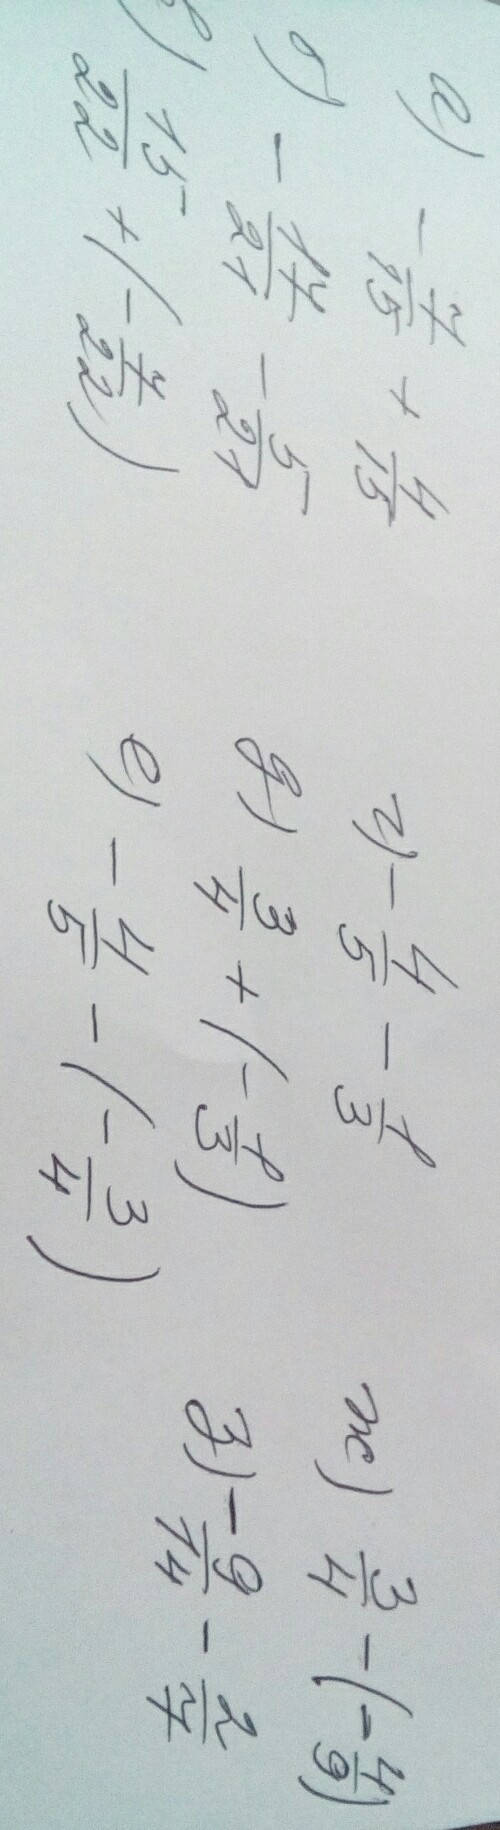 а) -7/15 + 4/15
б) -17/21 - 5/21
в) 15/22 + (-7/22)
г) -4/5 - 1/3
д) 3/4 + (-1/3)
е) -4/5 - (-3/4)
ж) 3/4 - (-4/9)
з) -9/14 - 2/7